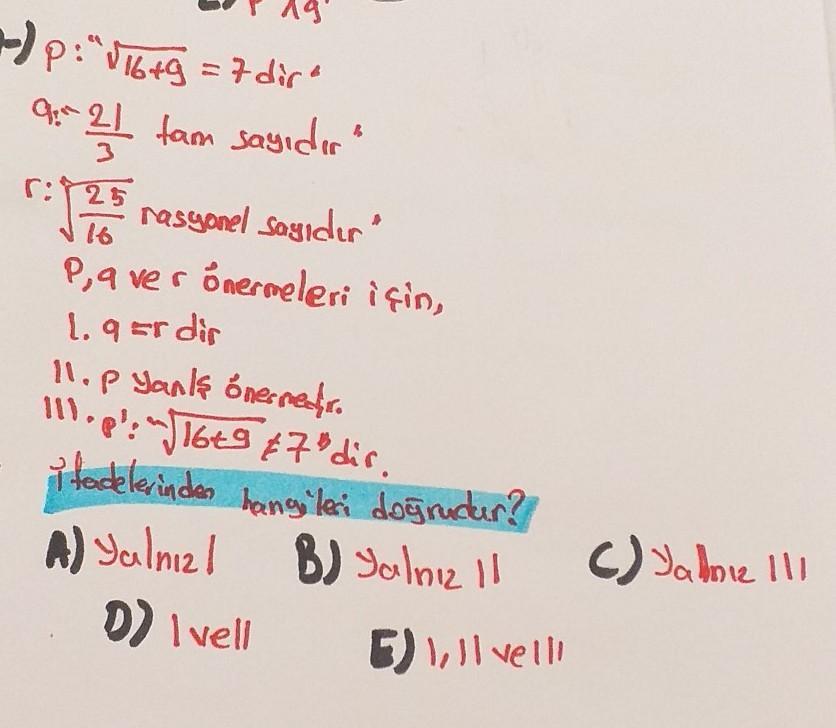 p:"√16+9 = 7 dir"
q:" 21/3 tam sayıdır"
r: √25/16 rasyonel sayıdır"
P,q ve r önermeleri için,
I. q=r dir
II. p yanlş önermedir.
III. p':"√16+9 ≠ 7" dir.
İfadelerinden hangileri doğrudur?
A) Yalnız I B) Yalnız II C) Yalnız III
D) I ve II E) I, II ve III